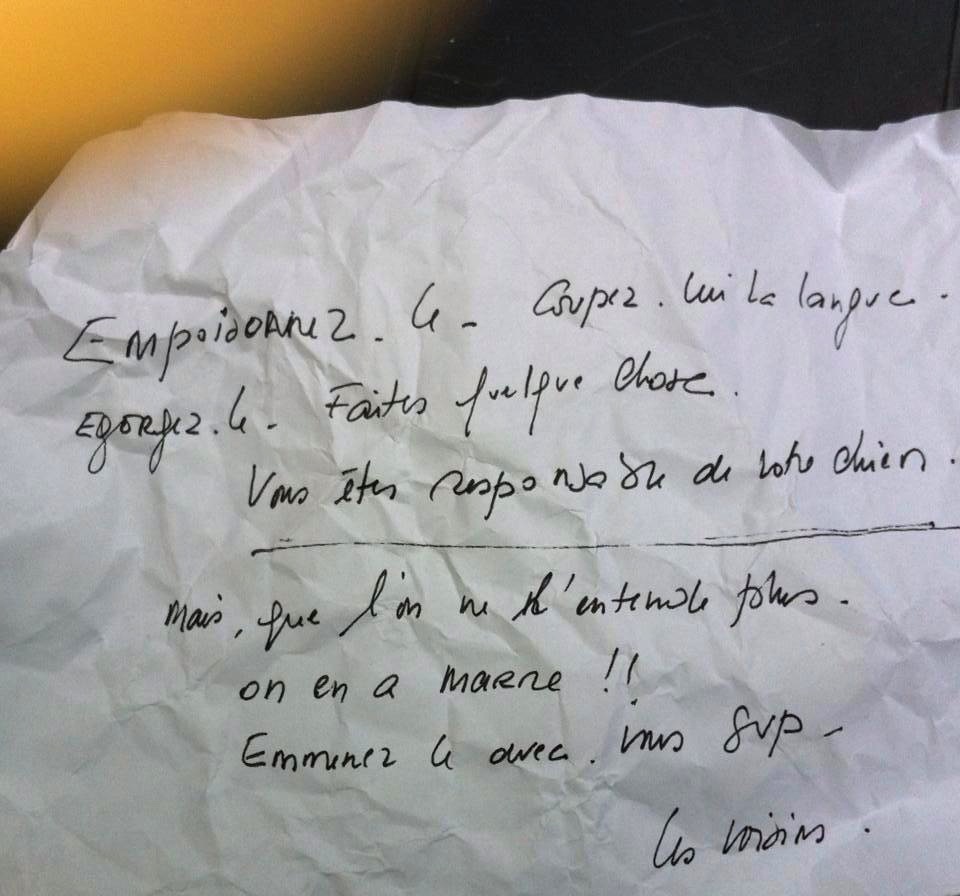 Empoisonnez-le - Coupez-lui la langue.
Egorgez-le - Faites quelque chose.
Vous êtes responsable de votre chien.
Mais, que l'on ne l'entende plus.
on en a marre !!
Emmenez le avec vous SVP -
Les voisins.